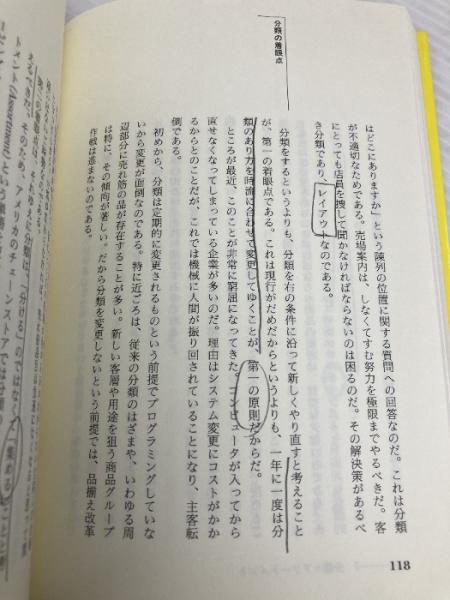 分類の着眼点
はどこにありますか」という陳列の位置に関する質問への回答なのだ。これは分類
が不適切なためである。売場案内は、しなくてすむ努力を極限までやるべきだ。客
にとっても店員を捜して聞かなければならないのは困るのだ。その解決策があるべ
き分類であり、レイアウトなのである。
分類をするというよりも、分類を右の条件に沿って新しくやり直すと考えること
が、第一の着眼点である。これは現行がだめだからというよりも、一年に一度は分
類のあり方を時流に合わせて変更してゆくことが、第一の原則だからだ。
ところが最近、このことが非常に窮屈になってきた。コンピュータが入ってから
直せなくなってしまっている企業が多いのだ。理由はシステム変更にコストがかか
るからとのことだが、これでは機械に人間が振り回されていることになり、主客転
倒である。
初めから、分類は定期的に変更されるものという前提でプログラミングしていな
いから変更が面倒なのである。特に近ごろは、従来の分類のはざまや、いわゆる周
辺部分に売れ筋の品が存在することが多い。新しい客層や用途を狙う商品グループ
は特に、その傾向が著しい。だから分類を変更しないという前提では、品揃え改革
作戦は進まないのである。
118
分類は、「分ける」のではなく
「集める」こと
きた。そのため、アメリカのチェーンストアでは分類
トメント(Assortment)といった